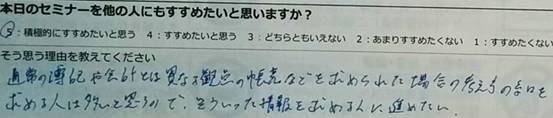 本日のセミナーを他の人にもすすめたいと思いますか？
5：積極的にすすめたいと思う　4：すすめたいと思う　3：どちらともいえない　2：あまりすすめたくない　1：すすめたくない
そう思う理由を教えてください
通常の簿記や会計とは異なる観点の帳票などを求められた場合の考え方の
求める人は多いと思うので、そういった情報を求める人に進めたい。